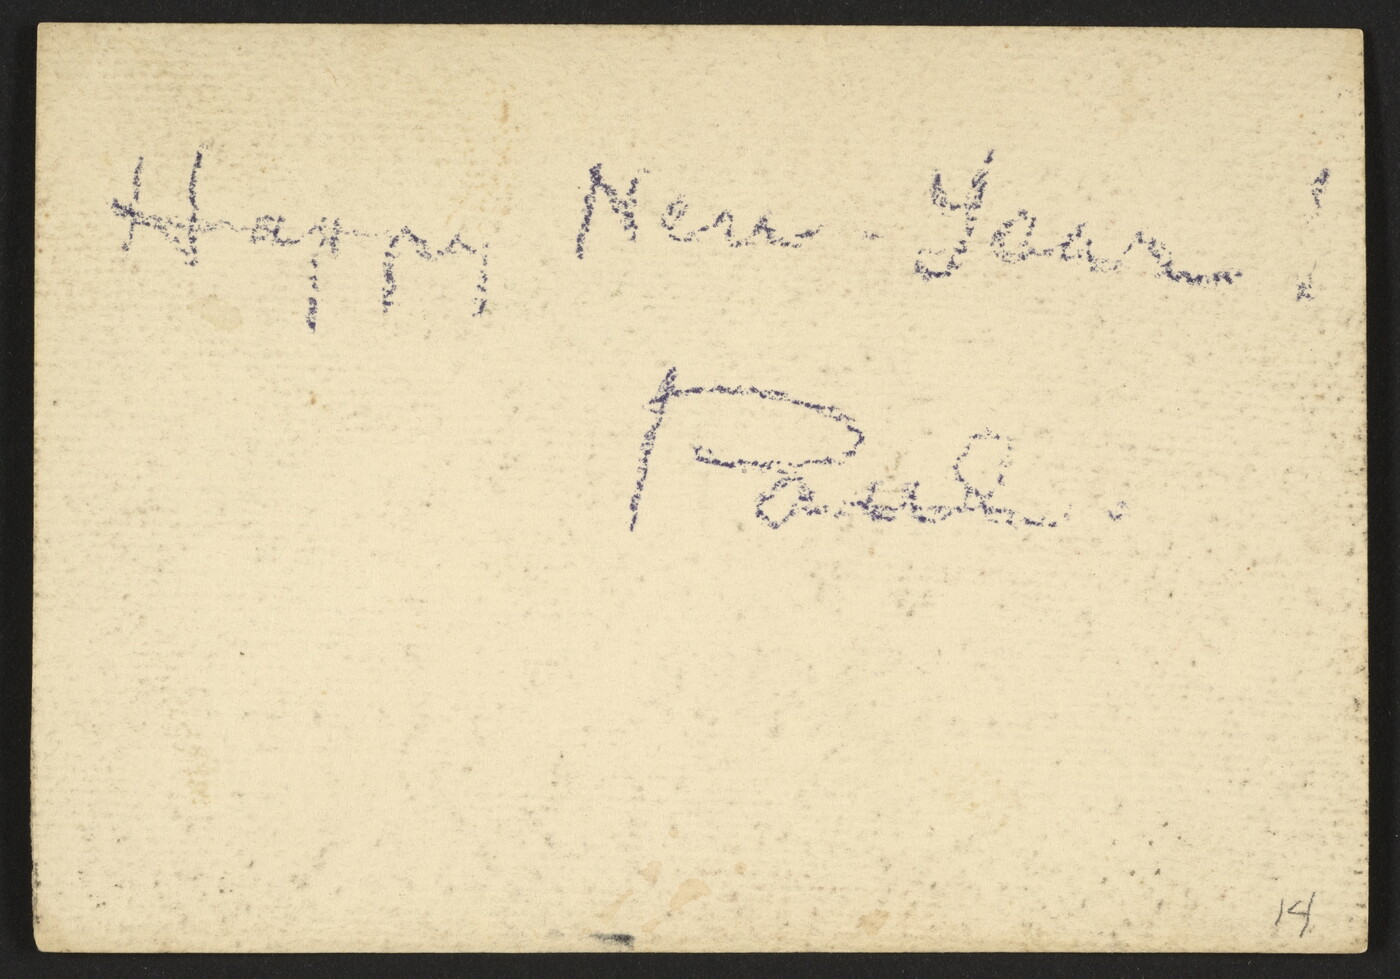 Happy New-Year!
Paul.
14